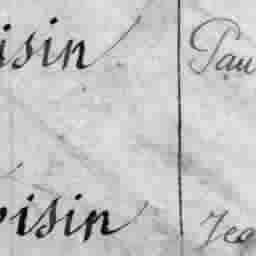 isin Pau
oisin Jea